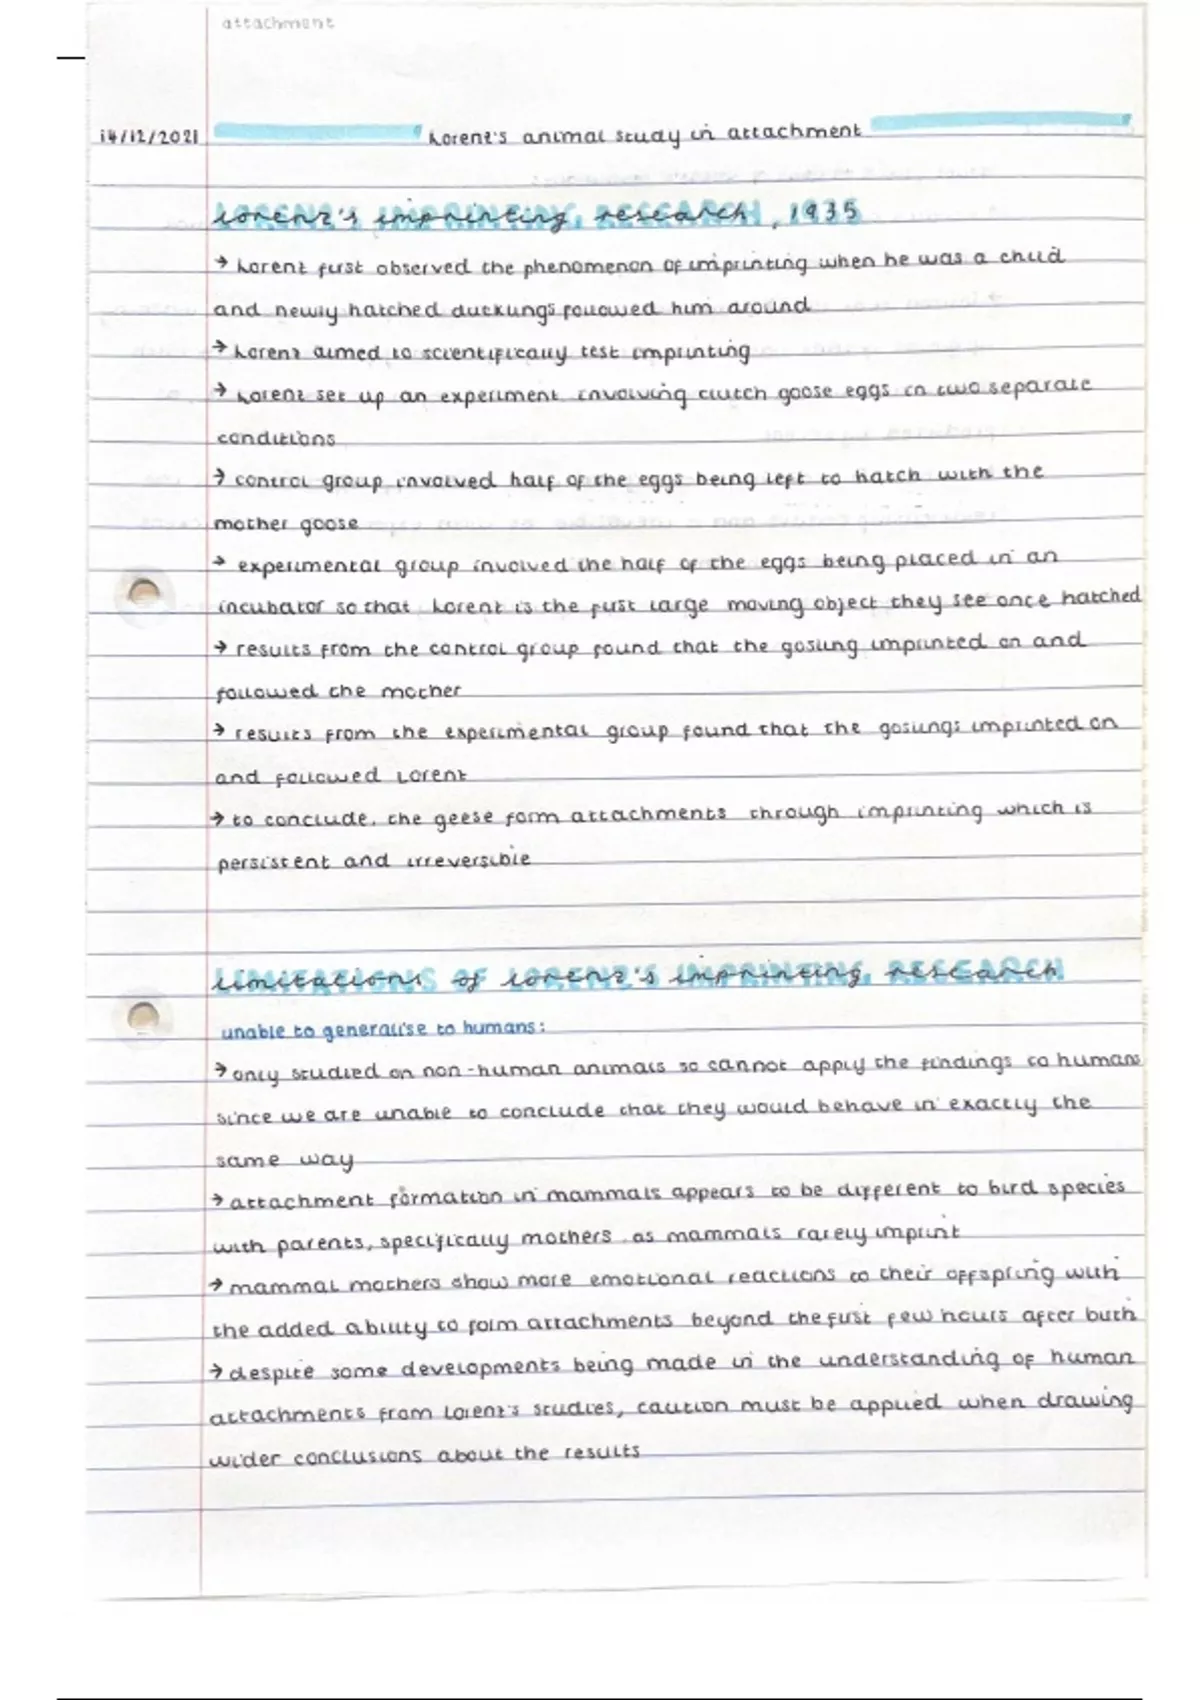 attachment
14/12/2021 Lorenz's animal study in attachment
Lorenz's imprinting research, 1935
→ Lorenz first observed the phenomenon of imprinting when he was a child
and newly hatched ducklings followed him around
→ Lorenz aimed to scientifically test imprinting
→ Lorenz set up an experiment involving clutch goose eggs in two separate
conditions
→ control group involved half of the eggs being left to hatch with the
mother goose
→ experimental group involved the half of the eggs being placed in an
incubator so that Lorenz is the first large moving object they see once hatched
→ results from the control group found that the gosling imprinted on and
followed the mother
→ results from the experimental group found that the goslings imprinted on
and followed Lorenz
→ to conclude, the geese form attachments through imprinting which is
persistent and irreversible
limitations of Lorenz's imprinting research
unable to generalise to humans:
→ only studied on non-human animals so cannot apply the findings to humans
since we are unable to conclude that they would behave in exactly the
same way
→ attachment formation in mammals appears to be different to bird species
with parents, specifically mothers as mammals rarely imprint
→ mammal mothers show more emotional reactions to their offspring with
the added ability to form attachments beyond the first few hours after birth
→ despite some developments being made in the understanding of human
attachments from Lorenz's studies, caution must be applied when drawing
wider conclusions about the results